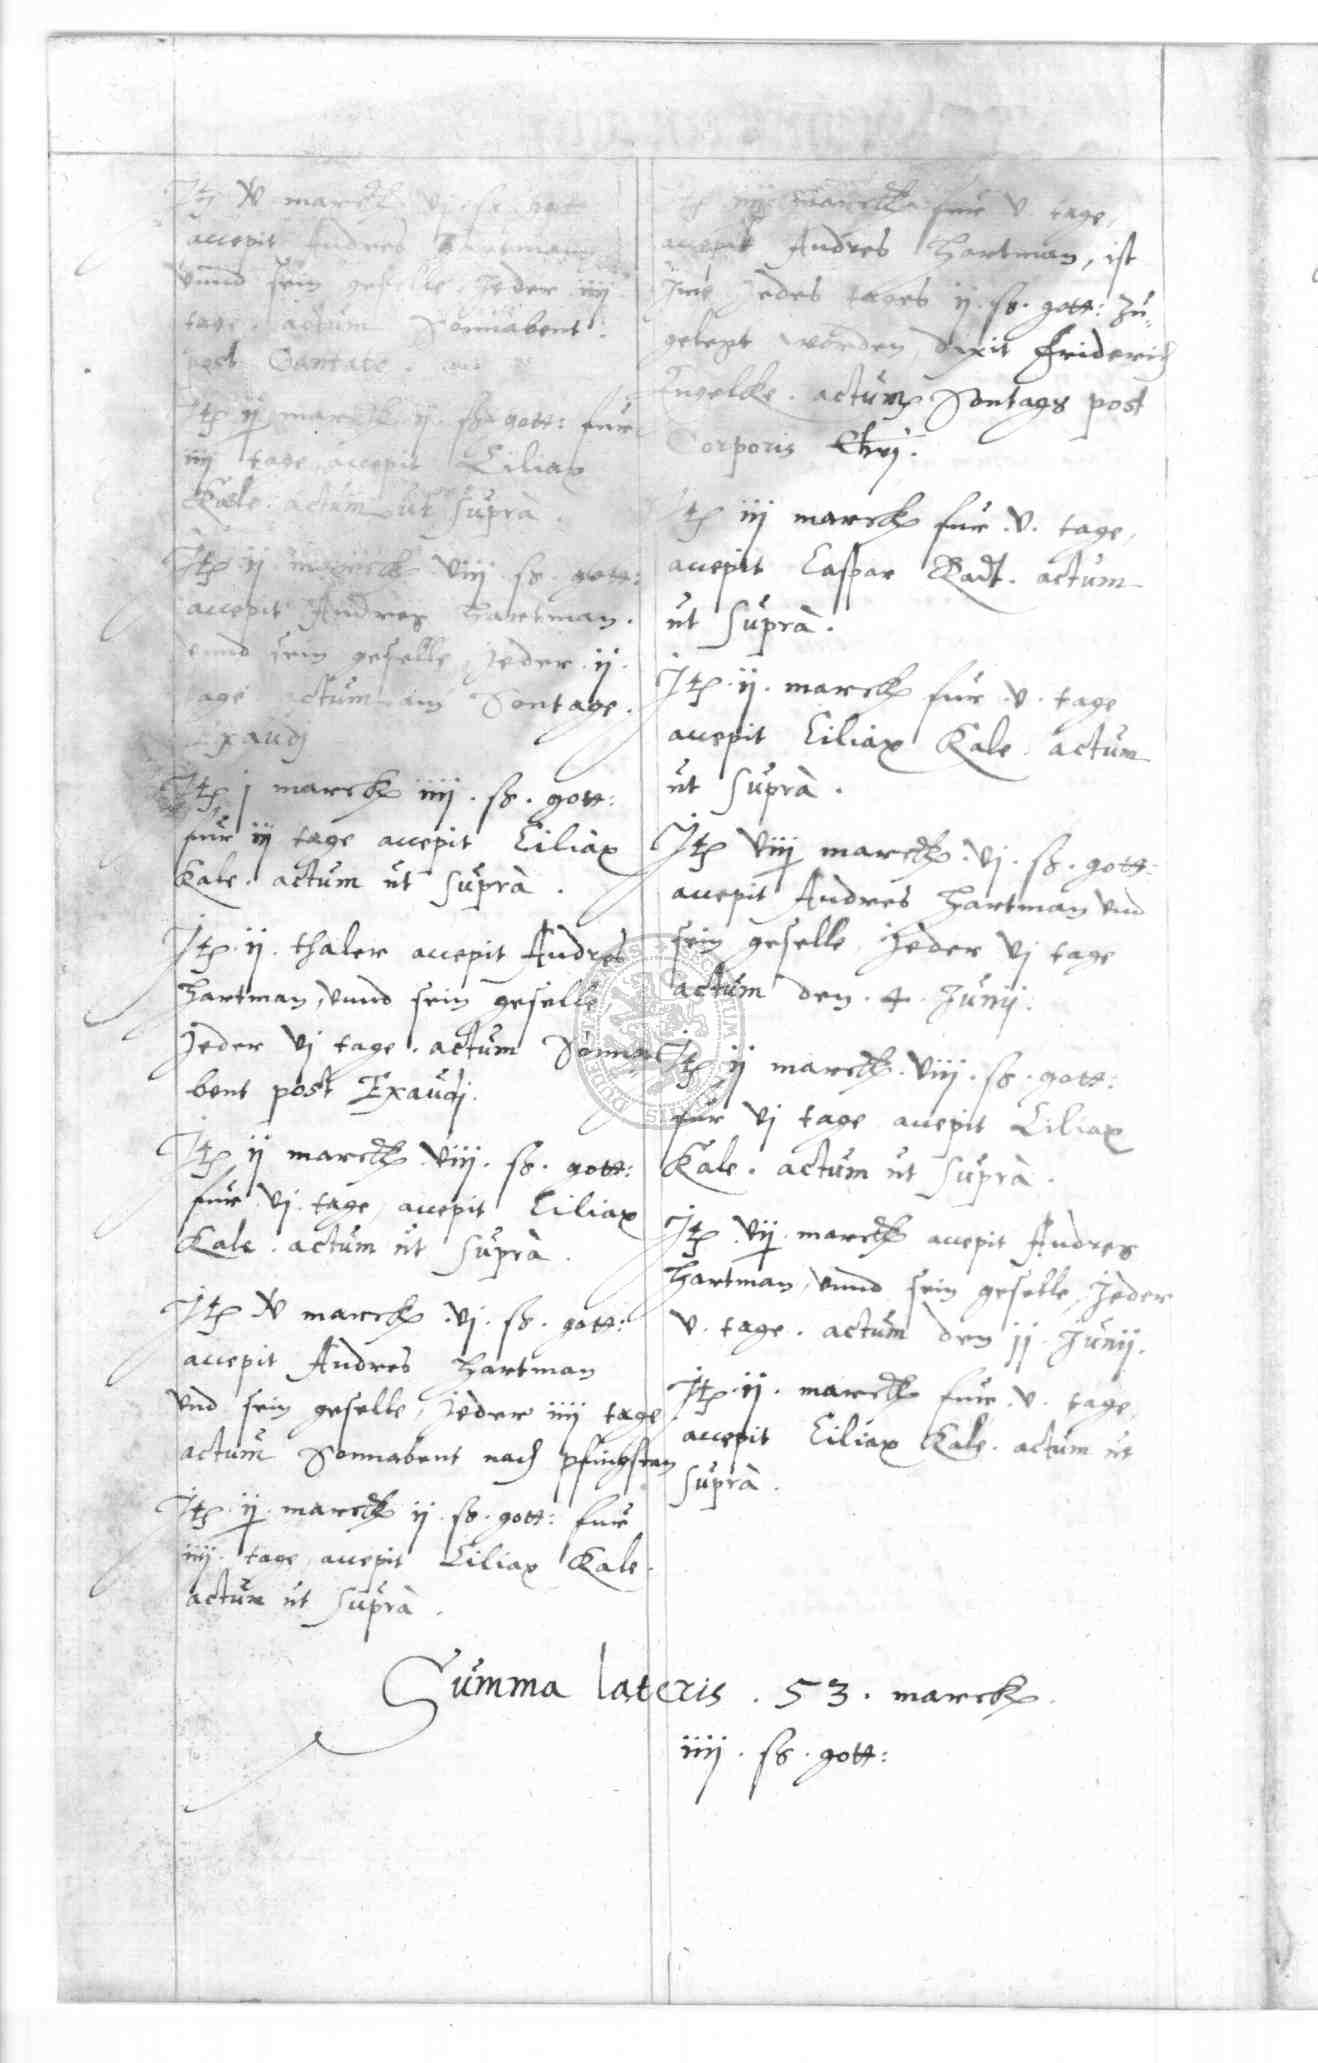 Jtem v marck vj ß gott
accepit Andres Hartman
vnnd sein geselle, Jeder iiij
tage. actum Sonnabent
post Cantate.
Jtem ij marck ij. ß. gott: fur
iiij tage, accepit Ciliax
Kale. actum ut supra.
Jtem ij marck viij. ß. gott:
accepit Andres Hartman.
vnnd sein geselle, Jeder .ij.
tage actum am Sontage.
Exaudj
Jtem j marck iiij. ß. gott:
fur iij tage accepit Ciliax
Kale. actum ut supra.
Jtem .ij. thaler accepit Andres
Hartman, vnnd sein geselle
Jeder vj tage. actum Sonna
bent post Exaudj.
Jtem ij marck viij. ß. gott:
fur vj. tage, accepit Ciliax
Kale. actum ut supra.
Jtem v marck .vj. ß. gott:
accepit Andres Hartman
vnd sein geselle, Jeder iiij tage
actum Sonnabent nach pfingsten
Jtem .ij. marck ij. ß. gott: fur
iiij. tage, accepit Ciliax Kale.
actum ut supra.
Jtem marck fur v. tage,
accepit Andres Hartman, ist
Jme Jedes tages ij. ß. gott: zu,,
gelegt worden, dixit Friderich
Engelke. actum Sontags post
Corporis Chrj.
Jtem iij marck fur .v. tage,
accepit Caspar Radt. actum
ut supra.
Jtem .ij. marck fur .v. tage
accepit Ciliax Kale. actum
ut supra.
Jtem viij marck .vj. ß. gott:
accepit Andres Hartman vnd
sein geselle, Jeder vj tage
actum den .4. Junij.
Jtem ij marck .viij. ß. gott:
fur vj tage accepit Ciliax
Kale. actum ut supra.
Jtem .vij. marck accepit Andres
Hartman, vnnd sein geselle, Jeder
v. tage. actum den jj. Junij.
Jtem .ij. marck fur .v. tage,
accepit Ciliax Kale. actum ut
supra.
Summa lateris . 53 . marck.
iiij . ß . gott: